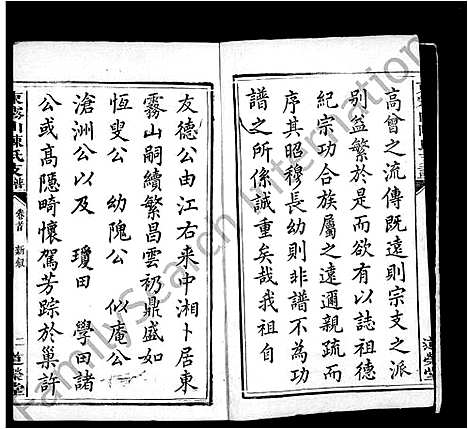 高曾之流傳既遠則宗支之派
别益繁於是而欲有以誌祖德
紀宗功合族屬之遠邇親疏而
序其昭穆長幼則非譜不為功
譜之所係誠重矣哉我祖自
友德公由江右来中湘卜居東
霧山嗣續繁昌雲礽鼎盛如
恆叟公 幼隗公 似庵公
滄洲公以及 瓊田 學田諸
公或高隱畸懷駕芳踪於巢許
東霧山陳氏支譜 卷首 新叙 二 道榮堂
FamilySearch International